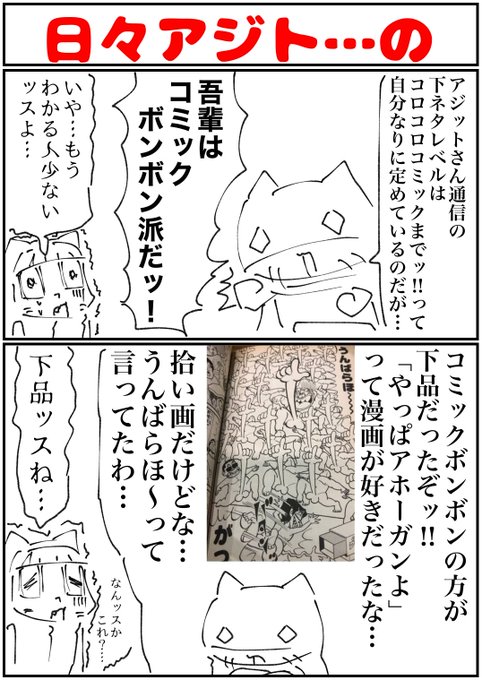 日々アジト…の
アジットさん通信の
下ネタレベルは
コロコロコミックまでッ!!って
自分なりに定めているのだが…
吾輩は
コミック
ボンボン派だッ！
いや…もう
わかる人少ない
ッスよ…
コミックボンボンの方が
下品だったぞッ!!
「やっぱアホーガンよ」
って漫画が好きだったな…
うんばらほ〜
がっ
拾い画だけどな…
うんばらほ〜って
言ってたわ…
下品ッスね…
なんッスか
これ？…